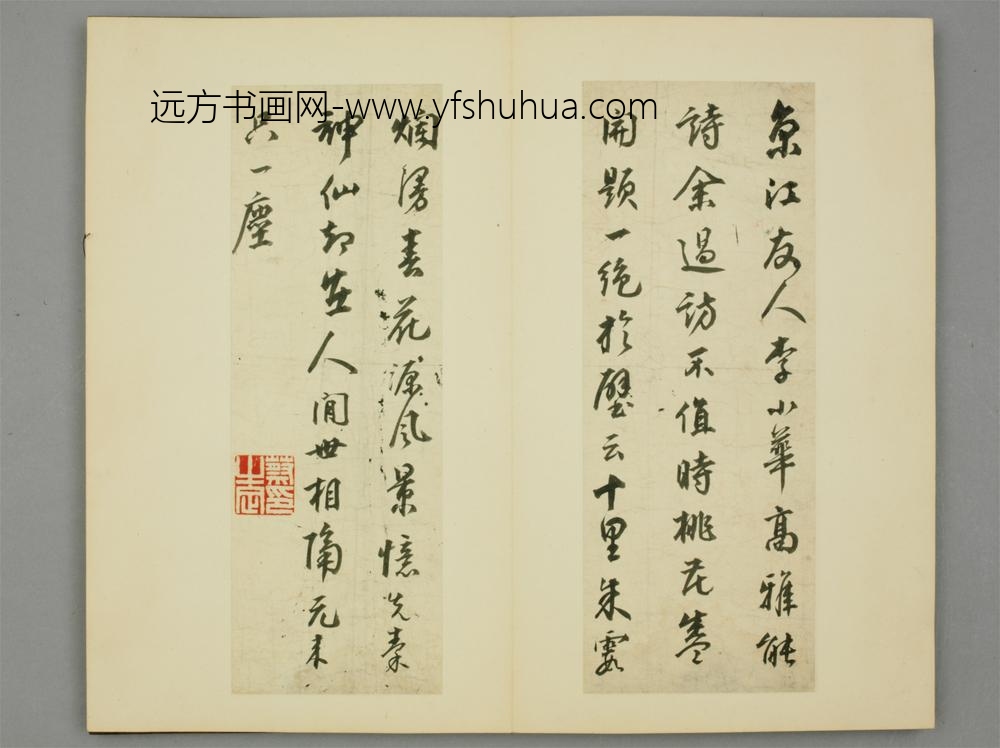 远方书画网-www.yfshuhua.com
京江友人李小華高雅能
詩余過訪不值時桃花盛
開題一絕於壁云十里朱霞
爛漫春花源風景憶先秦
神仙却在人間世相隔元來
只一塵